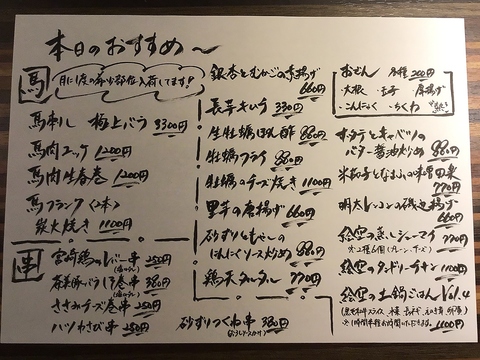 本日のおすすめ～
馬
月に1度の希少部位入荷してます!
馬刺し 極上バラ 3300円
馬肉ユッケ 1200円
馬肉生春巻 1200円
馬フランク〈2本〉
炭火焼き 1100円
串
宮崎鶏のレバー串 250円
巻串 380円
ささみチーズ巻串 250円
ハツわさび串 250円
銀杏とむかごの素揚げ
660円
長芋キムチ 330円
生牡蠣ぽん酢 880円
牡蠣フライ 880円
牡蠣のチーズ焼き 1100円
里芋の唐揚げ 660円
砂ずりともやしの
にんにくソース炒め 880円
鶏天タルタル 770円
砂ずりつくね串 380円
おでん 各種 200円
・大根 ・玉子 ・厚揚げ
・こんにゃく ・ちくわ
ホタテとキャベツの
バター醤油炒め 880円
米茄子となまふの味噌田楽
770円
明太レンコンの磯辺揚げ
660円
絵空の蒸しシューマイ 770円
(プレーン、チーズ)
絵空のタンドリーチキン 1100円
絵空の土鍋ごはん Vol.4
1100円